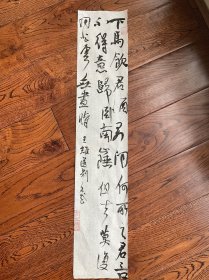 下馬飲君酒君问何所之君言
不得意歸卧南陲但去莫復
问白雲無盡時 王維送别